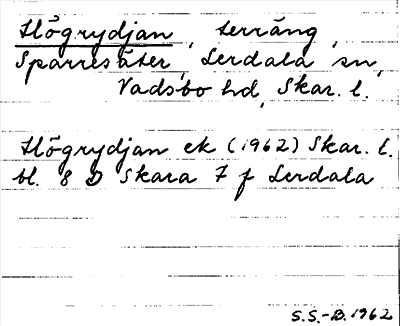 Högrydjan, terräng,
Sparresäter, Lerdala sn,
Vadsbo hd, Skar. l.
Högrydjan ek (1962) Skar. l.
bl. 8 D Skara 7 f Lerdala
S.S.-B. 1962